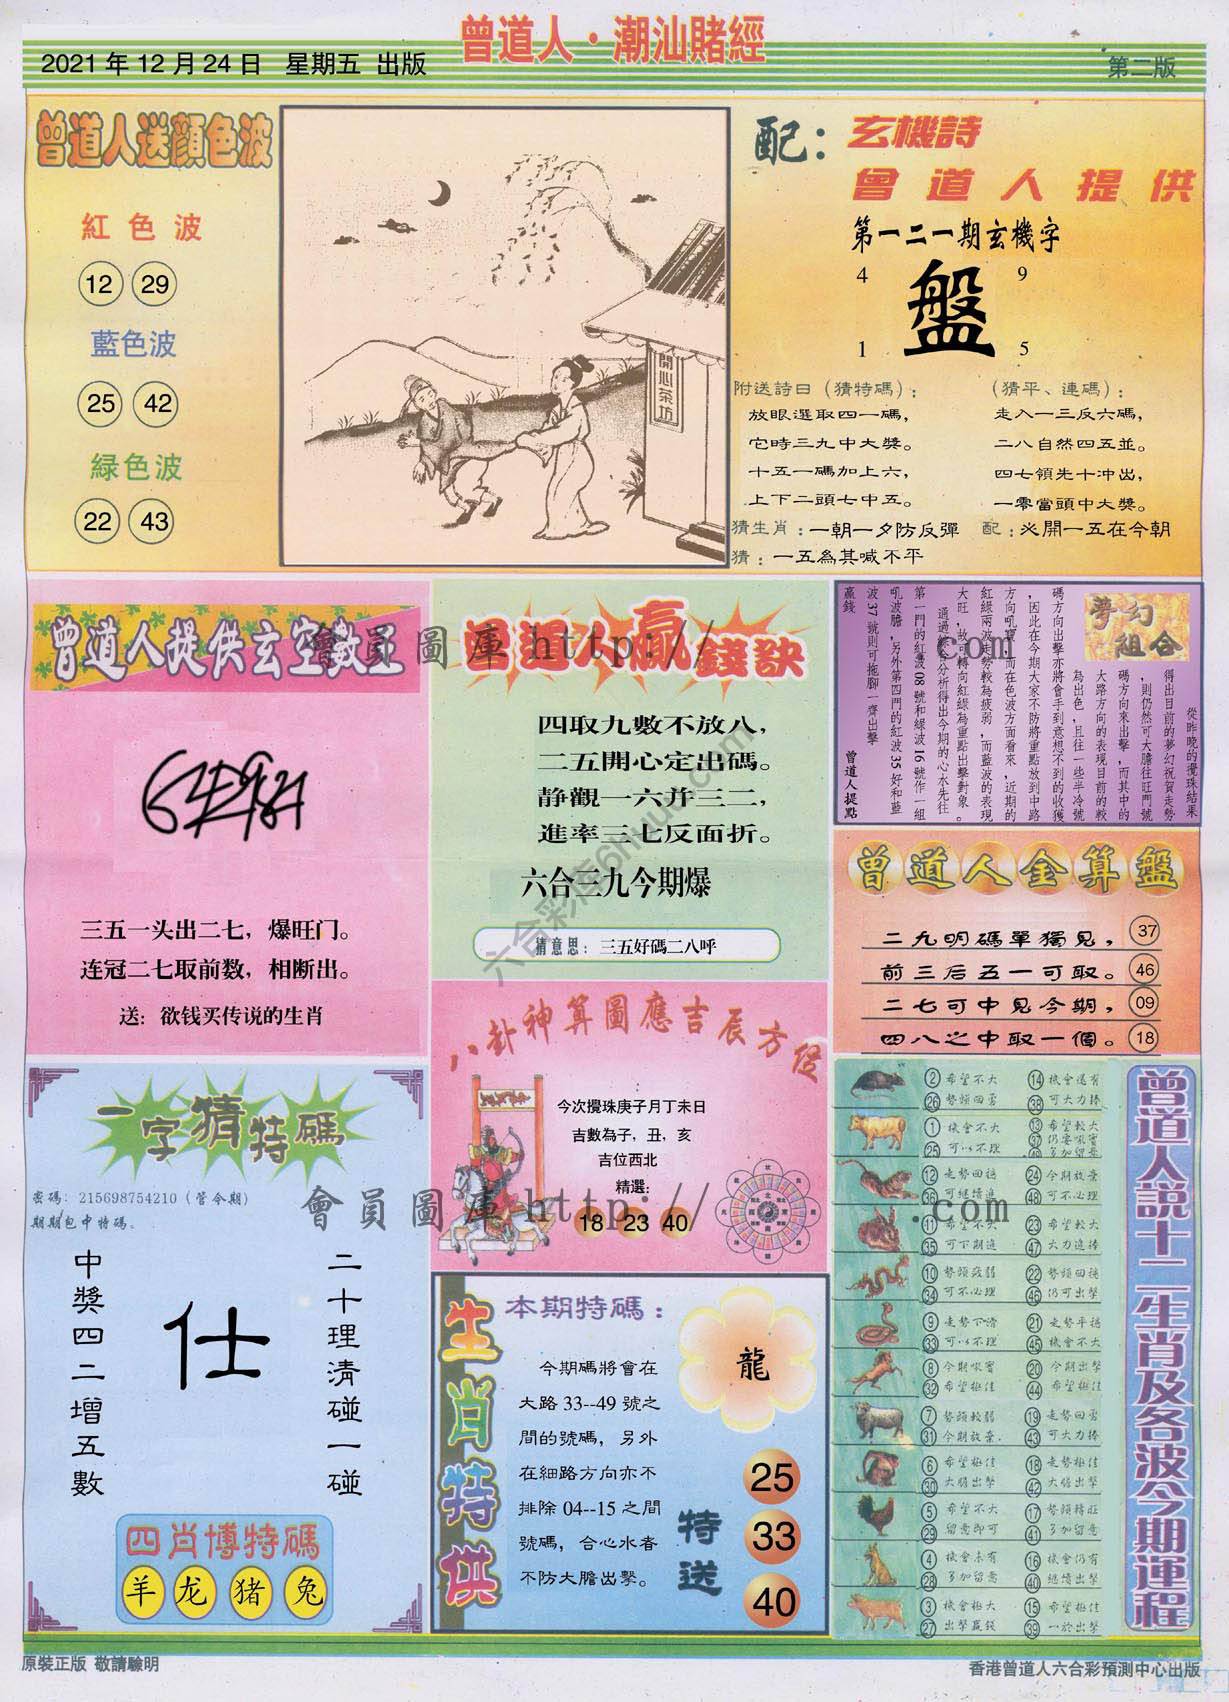 2021年12月24日 星期五 出版
曾道人·潮汕賭經
第二版
曾道人送顏色波
紅色波
12 29
藍色波
25 42
緑色波
22 43
開心茶坊
配：
玄機詩
曾道人提供
第一二一期玄機字
4 9
盤
1 5
附送詩曰（猜特碼）：
放眼選取四一碼，
它時三九中大獎。
十五一碼加上六，
上下二頭七中五。
（猜平、連碼）：
走入一三反六碼，
二八自然四五並。
四七領先十冲出，
一零當頭中大獎。
猜生肖：一朝一夕防反彈
配：必開一五在今朝
猜：一五為其喊不平
曾道人提供玄空數王
三五一头出二七，爆旺门。
连冠二七取前数，相断出。
送：欲钱买传说的生肖
曾道人贏錢訣
四取九數不放八，
二五開心定出碼。
静觀一六并三二，
進率三七反面折。
六合三九今期爆
猜意思：三五好碼二八呼
夢幻組合
從昨晚的攪珠結果
得出目前的夢幻祝賀走勢
，則仍然可大膽往旺門號
碼方向來出擊，而其中的
大路方向的表現目前的較
為出色,且往一些半冷號
碼方向出擊亦將會手到意想不到的收獲
,因此在今期大家不防將重點放到中路
方向吼寶,而在色波方面看來，近期的
紅綠兩波走勢較為疲弱,而藍波的表現
大旺，故可轉向紅綠為重點出擊對象。
通過綜合分析得出今期的心水先往
第一門的紅波08號和綠波16號作一組
吼波膽,另外第四門的紅波35好和藍
波37號則可拖腳一齊出擊
贏錢
曾道人提點
曾道人金算盤
二九明碼單獨見，37
前三后五一可取。46
二七可中見今期，09
四八之中取一個。18
八卦神算圖應吉辰方位
今次攪珠庚子月丁未日
吉數為子，丑，亥
吉位西北
精選：
18 23 40
一字猜特碼
密碼：215698754210（管今期）
期期包中特碼。
二十理清碰一碰
仕
中獎四二增五數
四肖博特碼
羊 龙 猪 兔
生肖特供
本期特碼：
龍
今期碼將會在
大路33--49號之
間的號碼，另外
在細路方向亦不
排除04--15之間
號碼，合心水者
不防大膽出擊。
特送
25
33
40
曾道人説十二生肖及各波今期運程
2 希望不大 14 機會還有
26 勢頭回勇 38 可大力捧
1 機會不大 13 希望較大
25 可以不理 37 仍要吼實
49 多加留意
12 走勢回穩 24 今期放棄
36 可繼續進 48 可不必理
11 希望不大 23 希望較大
35 可下期進 47 大力進捧
10 勢頭疲弱 22 勢頭回穩
34 可不必理 46 仍可出擊
9 走勢下滑 21 走勢平穩
33 可以不理 45 機會不大
8 今期吼實 20 今期出擊
32 希望極佳 44 希望極佳
7 勢頭較弱 19 走勢回勇
31 今期放棄. 43 可大力捧
6 希望極佳 18 走勢極佳
30 大膽出擊 42 大膽出擊
5 希望不大 17 勢頭轉旺
29 留意即可 41 多加留意
4 機會未有 16 機會仍有
28 多加留意 40 繼續出擊
3 機會極大 15 希望極佳
27 出擊贏錢 39 一於出擊
會員圖庫 http:// .com
六合彩库6huu.com
會員圖庫 http:// .com
原裝正版 敬請驗明
香港曾道人六合彩預測中心出版